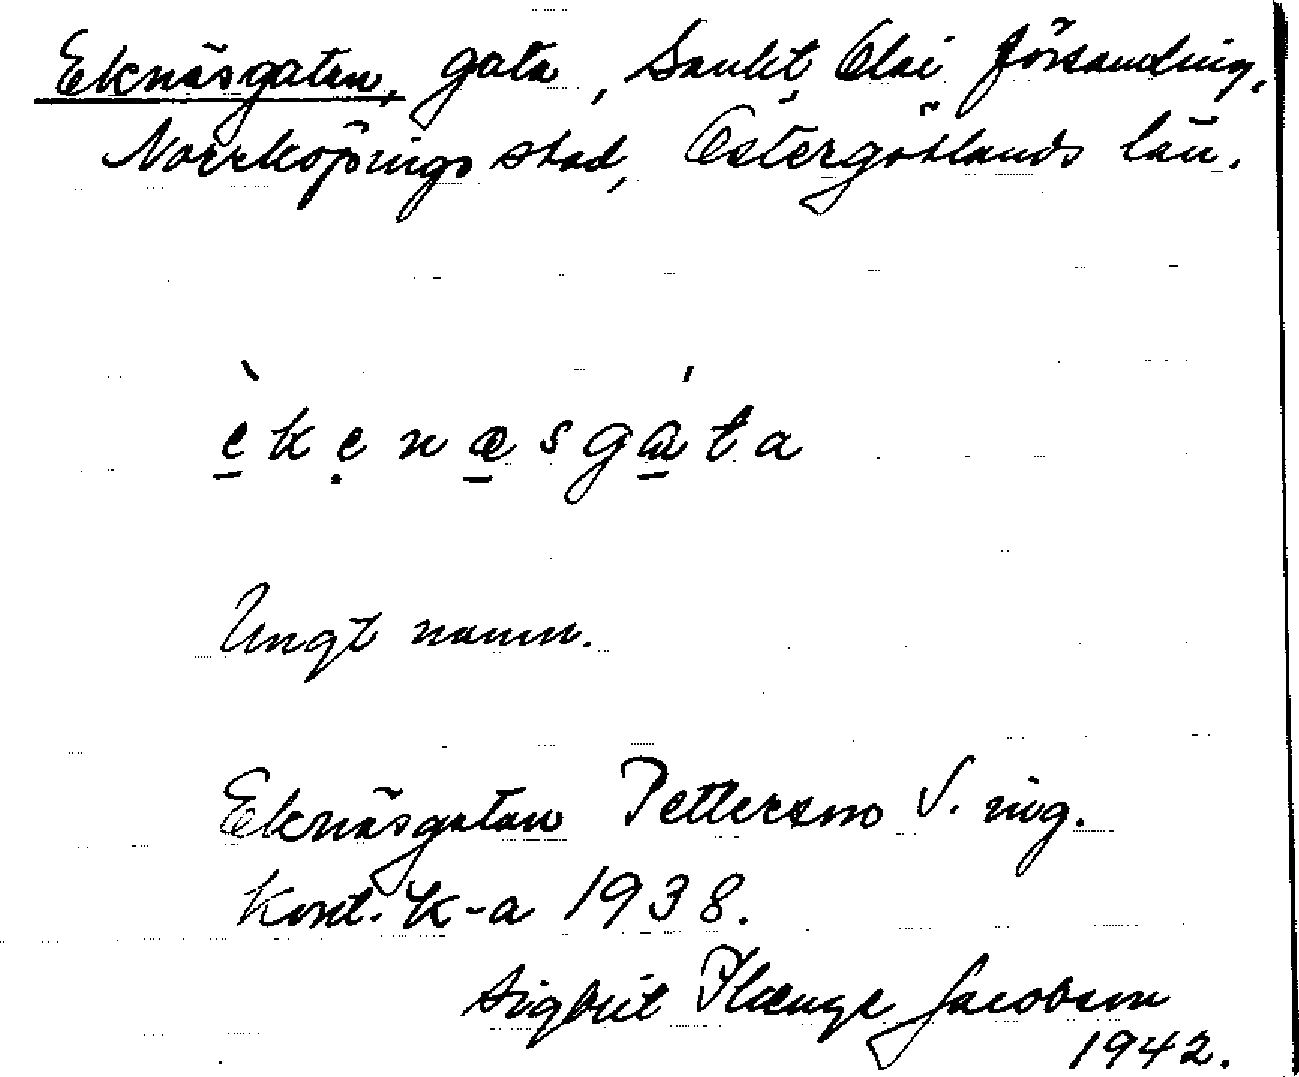 Eknäsgatan, gata, Sankt Olai församling,
Norrköpings stad, Östergötlands län.
è̱kẹnæ̱sgá̱ta
Ungt namn.
Eknäsgatan Petterson S. ing.
Kont. K-a 1938.
Sigbrit Plænge Jacobson
1942.